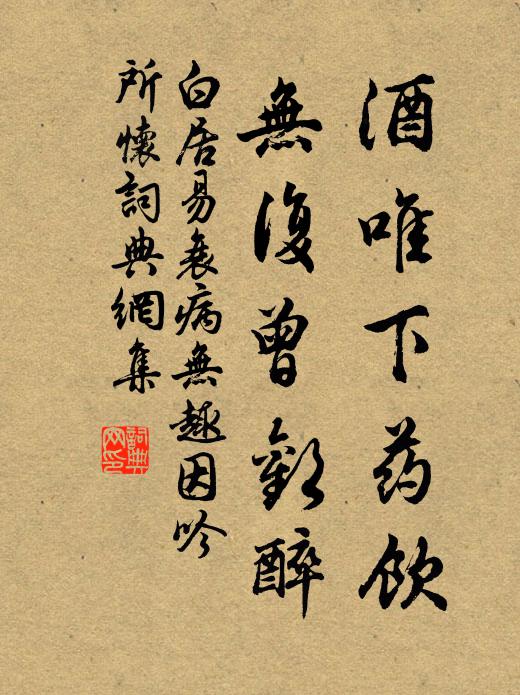 酒唯下药飲
無復曾歡醉
白居易衰病無趣因吟
所懷詞典網集
詞典
網印